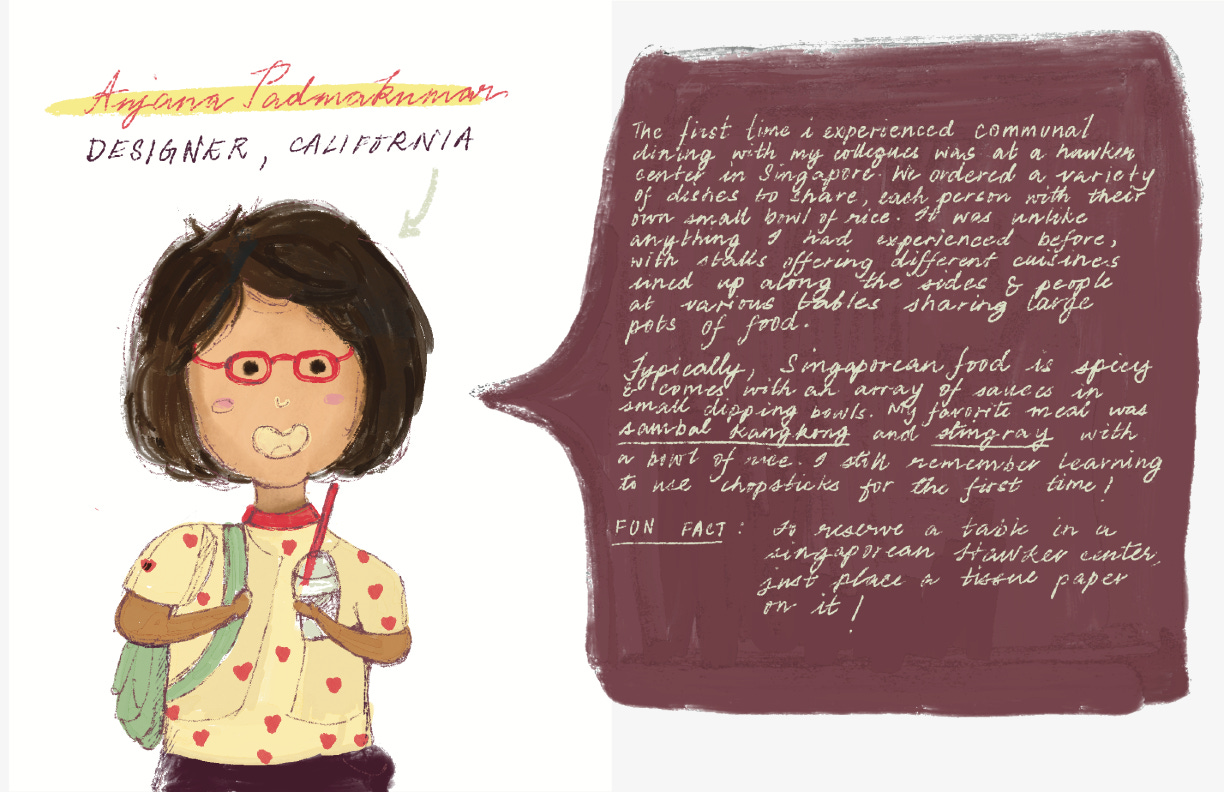 Anjana Padmakumar
DESIGNER, CALIFORNIA
The first time i experienced communal
dining with my collegues was at a hawker
center in Singapore. We ordered a variety
of dishes to share, each person with their
own small bowl of rice. It was unlike
anything I had experienced before,
with stalls offering different cuisines
lined up along the sides & people
at various tables sharing large
pots of food.
Typically, Singaporean food is spicy
& comes with an array of sauces in
small dipping bowls. My favorite meal was
sambal kangkong and stingray with
a bowl of rice. I still remember learning
to use chopsticks for the first time!
FUN FACT: To reserve a table in a
singaporean Hawker center,
just place a tissue paper
on it!